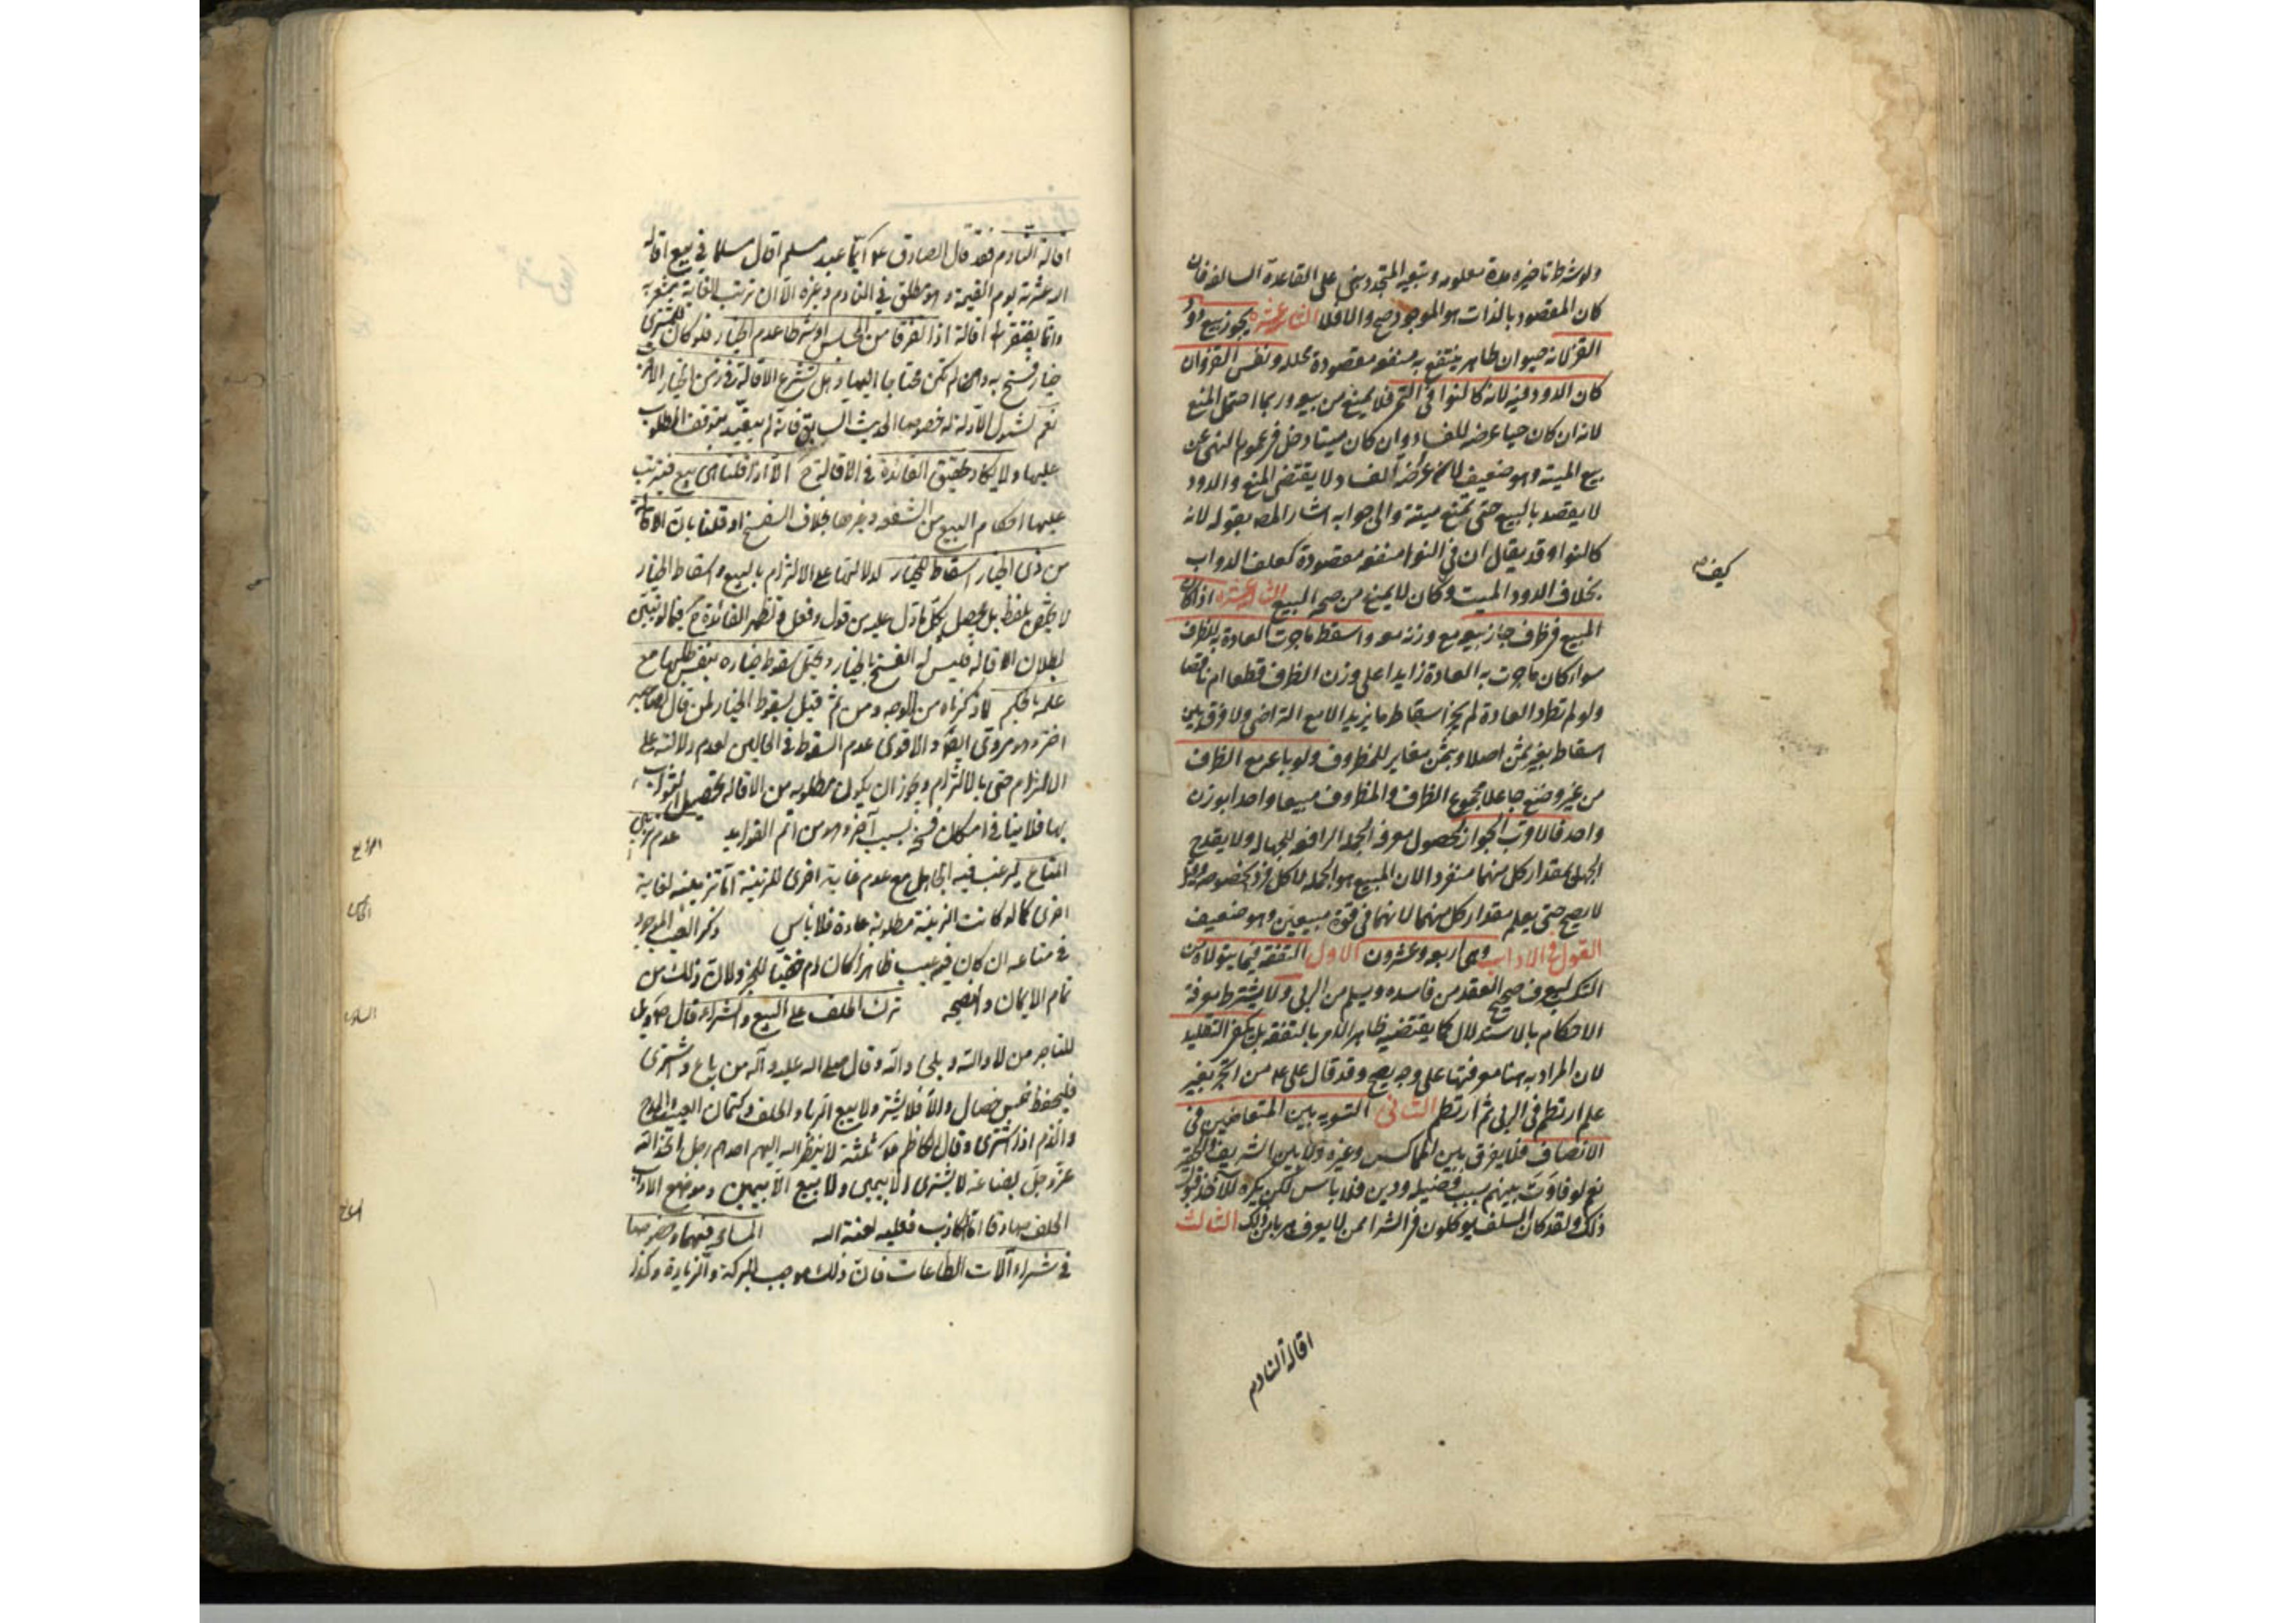 ولو شرط تاخيره مدة معلومه وتبعية المتجدد بنى على القاعدة السالفة فان
كان المقصود بالذات هو الموجود صح والا فلا الثانية عشرة يجوز بيع دود
القز لانه حيوان طاهر ينتفع به منفعة مقصودة محللة ونفس القز وان
كان الدود فيه لانه كالنوا فى التمر فلا يمنع من بيعه وربما احتمل المنع
لانه ان كان حيا عرضه للفساد وان كان ميتا دخل فى عموم النهى عن
بيع الميتة وهو ضعيف لان عرضة الفساد لا يقتضى المنع والدود
لا يقصد بالبيع حتى تمنع ميتة والى جوابه اشار المص بقوله لانه
كالنوا وقد يقال ان فى النوا منفعة مقصودة كعلف الدواب
بخلاف الدود الميت و كان لا يمنع من صحة البيع الثالثة عشرة اذا كان
كيف
المبيع فى ظرف جاز بيعه مع وزنه معه واسقط ما جرت العادة به للظرف
سواء كان ما جرت به العادة زايدا على وزن الظرف قطعا ام ناقصا
ولو لم تطرد العادة لم يجز اسقاط ما يزيد الا مع التراضى ولا فرق بين
اسقاط بغير ثمن اصلا وبثمن مغاير للمظروف ولو باعه مع الظرف
من غير وضع جاعلا مجموع الظرف والمظروف مبيعا واحدا بوزن
واحد فالاقرب الجواز لحصول معرفة الجملة الرافعة للجهالة ولا يقدح
الجهل بمقدار كل منهما منفردا لان المبيع هو الجملة لا كل فرد بخصوصه وقيل
لا يصح حتى يعلم مقدار كل منهما لانهما فى قوة مبيعين وهو ضعيف
القول فى الاداب وهى اربعة وعشرون الاول التفقه فيما يتولاه من
التكسب ليعرف صحيح العقد من فاسده ويسلم من الربى ولا يشترط معرفة
الاحكام بالاستدلال كما يقتضيه ظاهر الامر بالتفقه بل يكفى التقليد
لان المراد به هنا معرفتها على وجه يصح وقد قال على ع من اتجر بغير
علم ارتطم فى الربى ثم ارتطم الثانى التسوية بين المتعاملين فى
الانصاف فلا يفرق بين المماكس وغيره ولا بين الشريف والحقير
نعم لو فاوت بينهم بسبب فضيلة ودين فلا باس لكن يكره للاخذ قبول
ذلك ولقد كان السلف يوكلون فى الشراء من لا يعرف هربا من ذلك الثالث
اقالة النادم
اقالة النادم فقد قال الصادق ع ايما عبد مسلم اقال مسلما فى بيع اقاله
الله عثرته يوم القيمة وهو مطلق فى النادم وغيره الا ان ترتب الغاية مشعر به
وانما يفتقر الى اقالة اذا تفرقا من المجلس او شرطا عدم الخيار فلو كان للمشترى
خيار فسخ به وان لم تكن محتاجا اليها وهل تشرع الاقالة فى زمن الخيار الاقرب
نعم لشمول الادلة له خصوصا الحديث السابق فانه لم يتقيد بتوقف المطلوب
عليها ولا يكاد يتحقق الفائدة فى الاقالة ح الا اذا قلنا هى بيع فيترتب
عليها احكام البيع من الشفعة وغيرها بخلاف الفسخ او قلنا بان الاقالة
من ذى الخيار اسقاط للخيار لدلالتها على الالتزام بالبيع واسقاط الخيار
لا يختص بلفظ بل يحصل بكل ما دل عليه من قول وفعل وتظهر الفائدة ح فيما لو تبين
بطلان الاقالة فليس له الفسخ بالخيار ويحتمل سقوط خياره بنفس طلبها مع
علمه بالحكم لما ذكرناه من الوجه ومن ثم قيل بسقوط الخيار لمن قال لصاحبه
اختر وهو مروى ايضا والاقوى عدم السقوط فى الحالين لعدم دلالته على
الالتزام حتى بالالتزام ويجوز ان يكون مطلوبه من الاقالة تحصيل الثواب
بها فلا ينافى امكان فسخه بسبب آخر وهو من اتم الفوايد عدم تزيين
الرابع
المتاع ليرغب فيه الجاهل مع عدم غاية اخرى للزينة اما تزيينه لغاية
اخرى كما لو كانت الزينة مطلوبة عادة فلا باس ذكر العيب الموجود
الخامس
فى متاعه ان كان فيه عيب ظاهرا كان ام خفيا للخبر ولان ذلك من
تمام الايمان والنصيحة ترك الحلف على البيع والشراء قال ص ويل
السادس
للتاجر من لا والله وبلى والله وقال صلى الله عليه وآله من باع واشترى
فليحفظ خمس خصال والا فلا يشتر ولا يبيع الربا والحلف وكتمان العيب والمدح
والذم اذا اشترى وقال الكاظم ع ثلثة لا ينظر الله اليهم احدهم رجل اتخذ الله
عز وجل بضاعة لا يشترى الا بيمين ولا يبيع الا بيمين وموضع الادب
الحلف صادقا اما الكاذب فعليه لعنة الله المسامحة فيهما وخصوصا
السابع
فى شراء آلات الطاعات فان ذلك موجب للبركة والزيادة وكذا